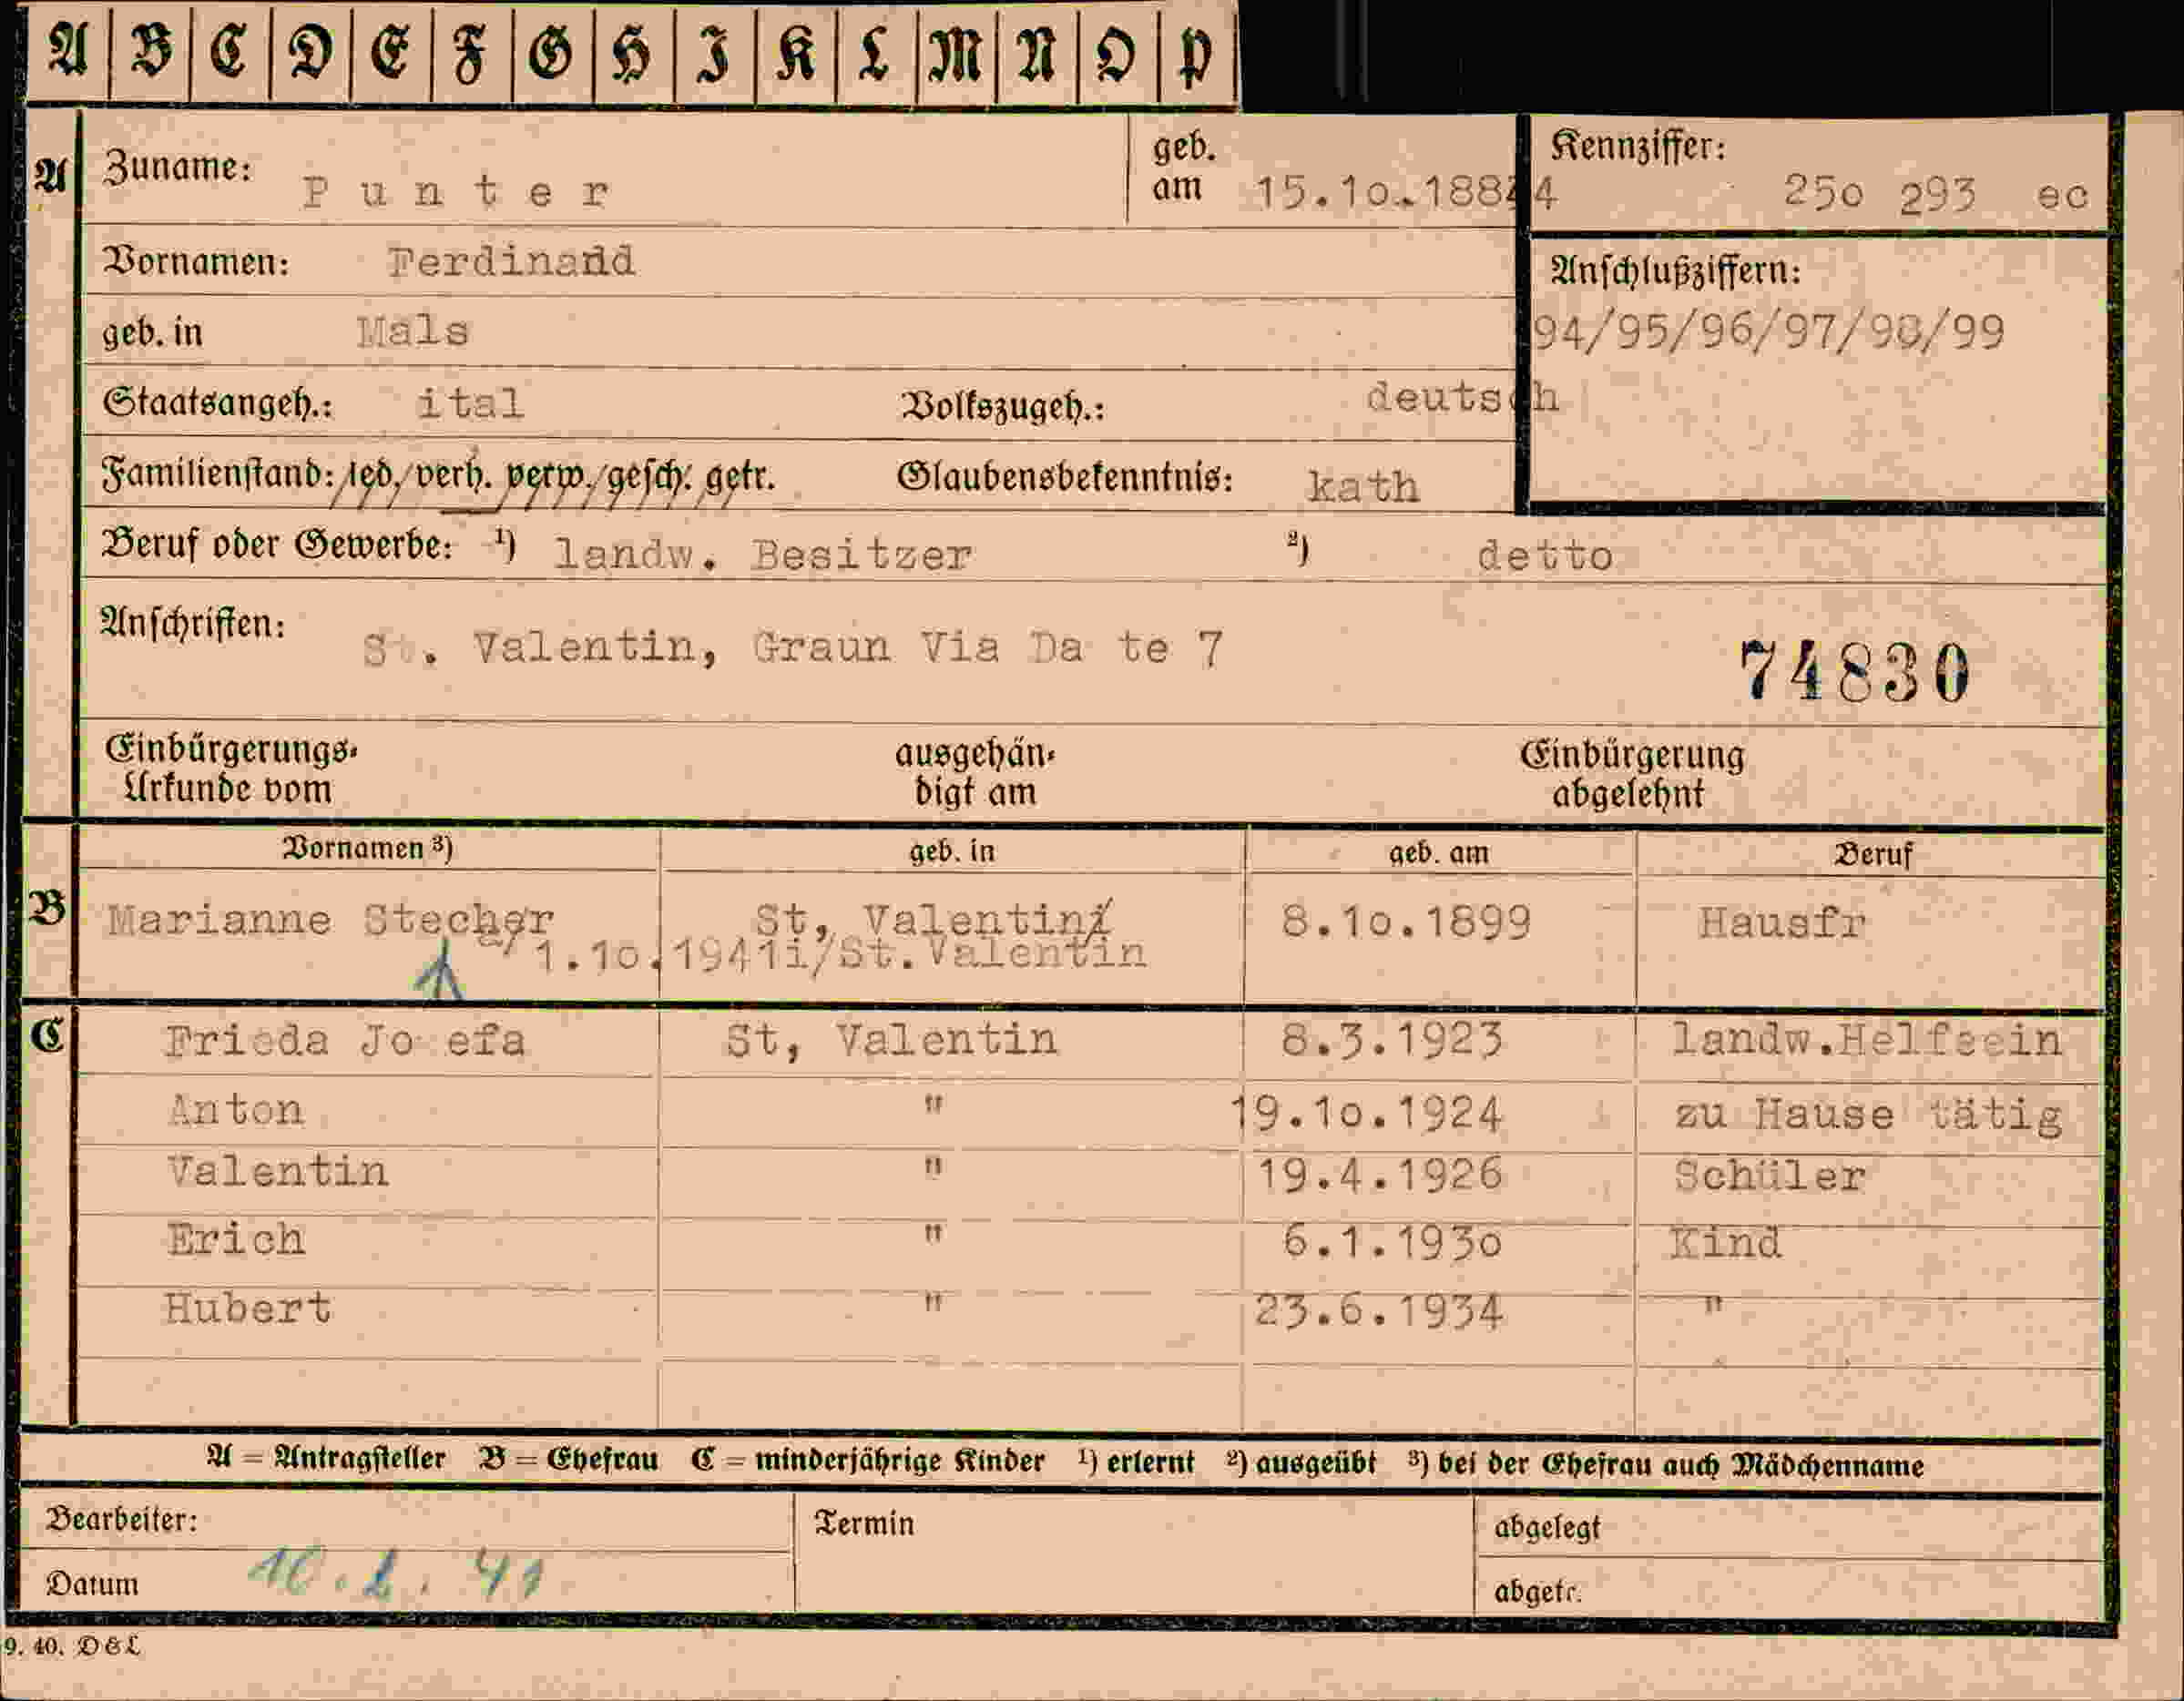 A B C D E F G H I K L M N O P
A Zuname: Punter geb. am 15.10.1884 Kennziffer: 25o 293 ec
Vornamen: Ferdinand Anschlußziffern:
geb. in Mals 94/95/96/97/98/99
Staatsangeh.: ital Volkszugeh.: deutsch
Familienstand: led. verh. verw. gesch. getr. Glaubensbekenntnis: kath
Beruf oder Gewerbe: ¹) landw. Besitzer ²) detto
Anschriften: St. Valentin, Graun Via Da te 7 74830
Einbürgerungs- ausgehän- Einbürgerung
Urkunde vom digt am abgelehnt
Vornamen ³) geb. in geb. am Beruf
B Marianne Stecher St, Valentin 8.1o.1899 Hausfr
1.1o.1941i/St.Valentin
C Frieda Jo efa St, Valentin 8.3.1923 landw.Helfeein
Anton " 19.1o.1924 zu Hause tätig
Valentin " 19.4.1926 Schüler
Erich " 6.1.193o Kind
Hubert " 23.6.1934 "
A = Antragsteller B = Ehefrau C = minderjährige Kinder ¹) erlernt ²) ausgeübt ³) bei der Ehefrau auch Mädchenname
Bearbeiter: Termin abgelegt
Datum abgetr.
9. 40. D & L